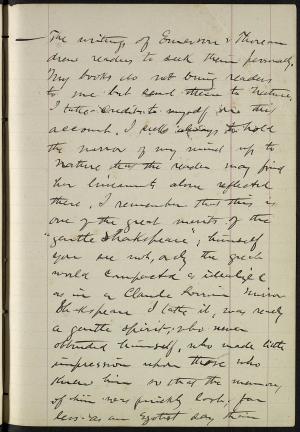 — The writings of Emerson & Thoreau
drew readers to seek them personally.
My books do not bring readers
to me but send them to Nature.
I take credit to myself on this
account. I seek always to hold
the mirror of my mind up to
Nature that the reader may find
her lineaments alone reflected
there. I remember that this is
one of the great merits of the
"gentle Shakespeare"; himself
you see not, only the great
world compacted & idealized
as in a Claude Lorrain mirror
Shakspeare I take it, was really
a gentle spirit, who never
obtruded himself, who made little
impression upon those who
knew him so that the memory
of him was quickly lost; far
less as an egotist day than